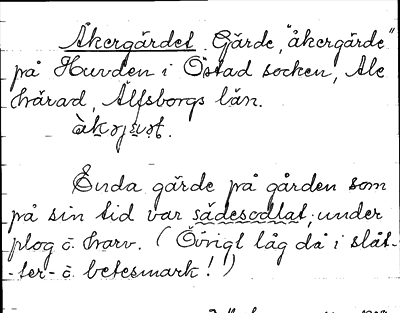 Åkergärdet. Gärde, "åkergärde"
på Hurvden i Östad socken, Ale
härad, Älfsborgs län.
Enda gärde på gården som
på sin tid var sädesodlat, under
plog o. harv. (Övrigt låg då i slåt-
-ter- o. betesmark!)